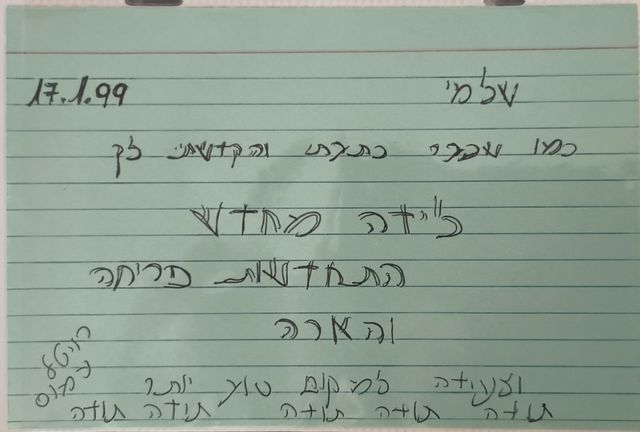 17.1.99 שלומי
כמו שכבר כתבתי והקדשתי לך
לידה מחדש
התחדשות פריחה
והארה
ועלידה למקום טוב יותר
תודה תודה תודה תודה תודה